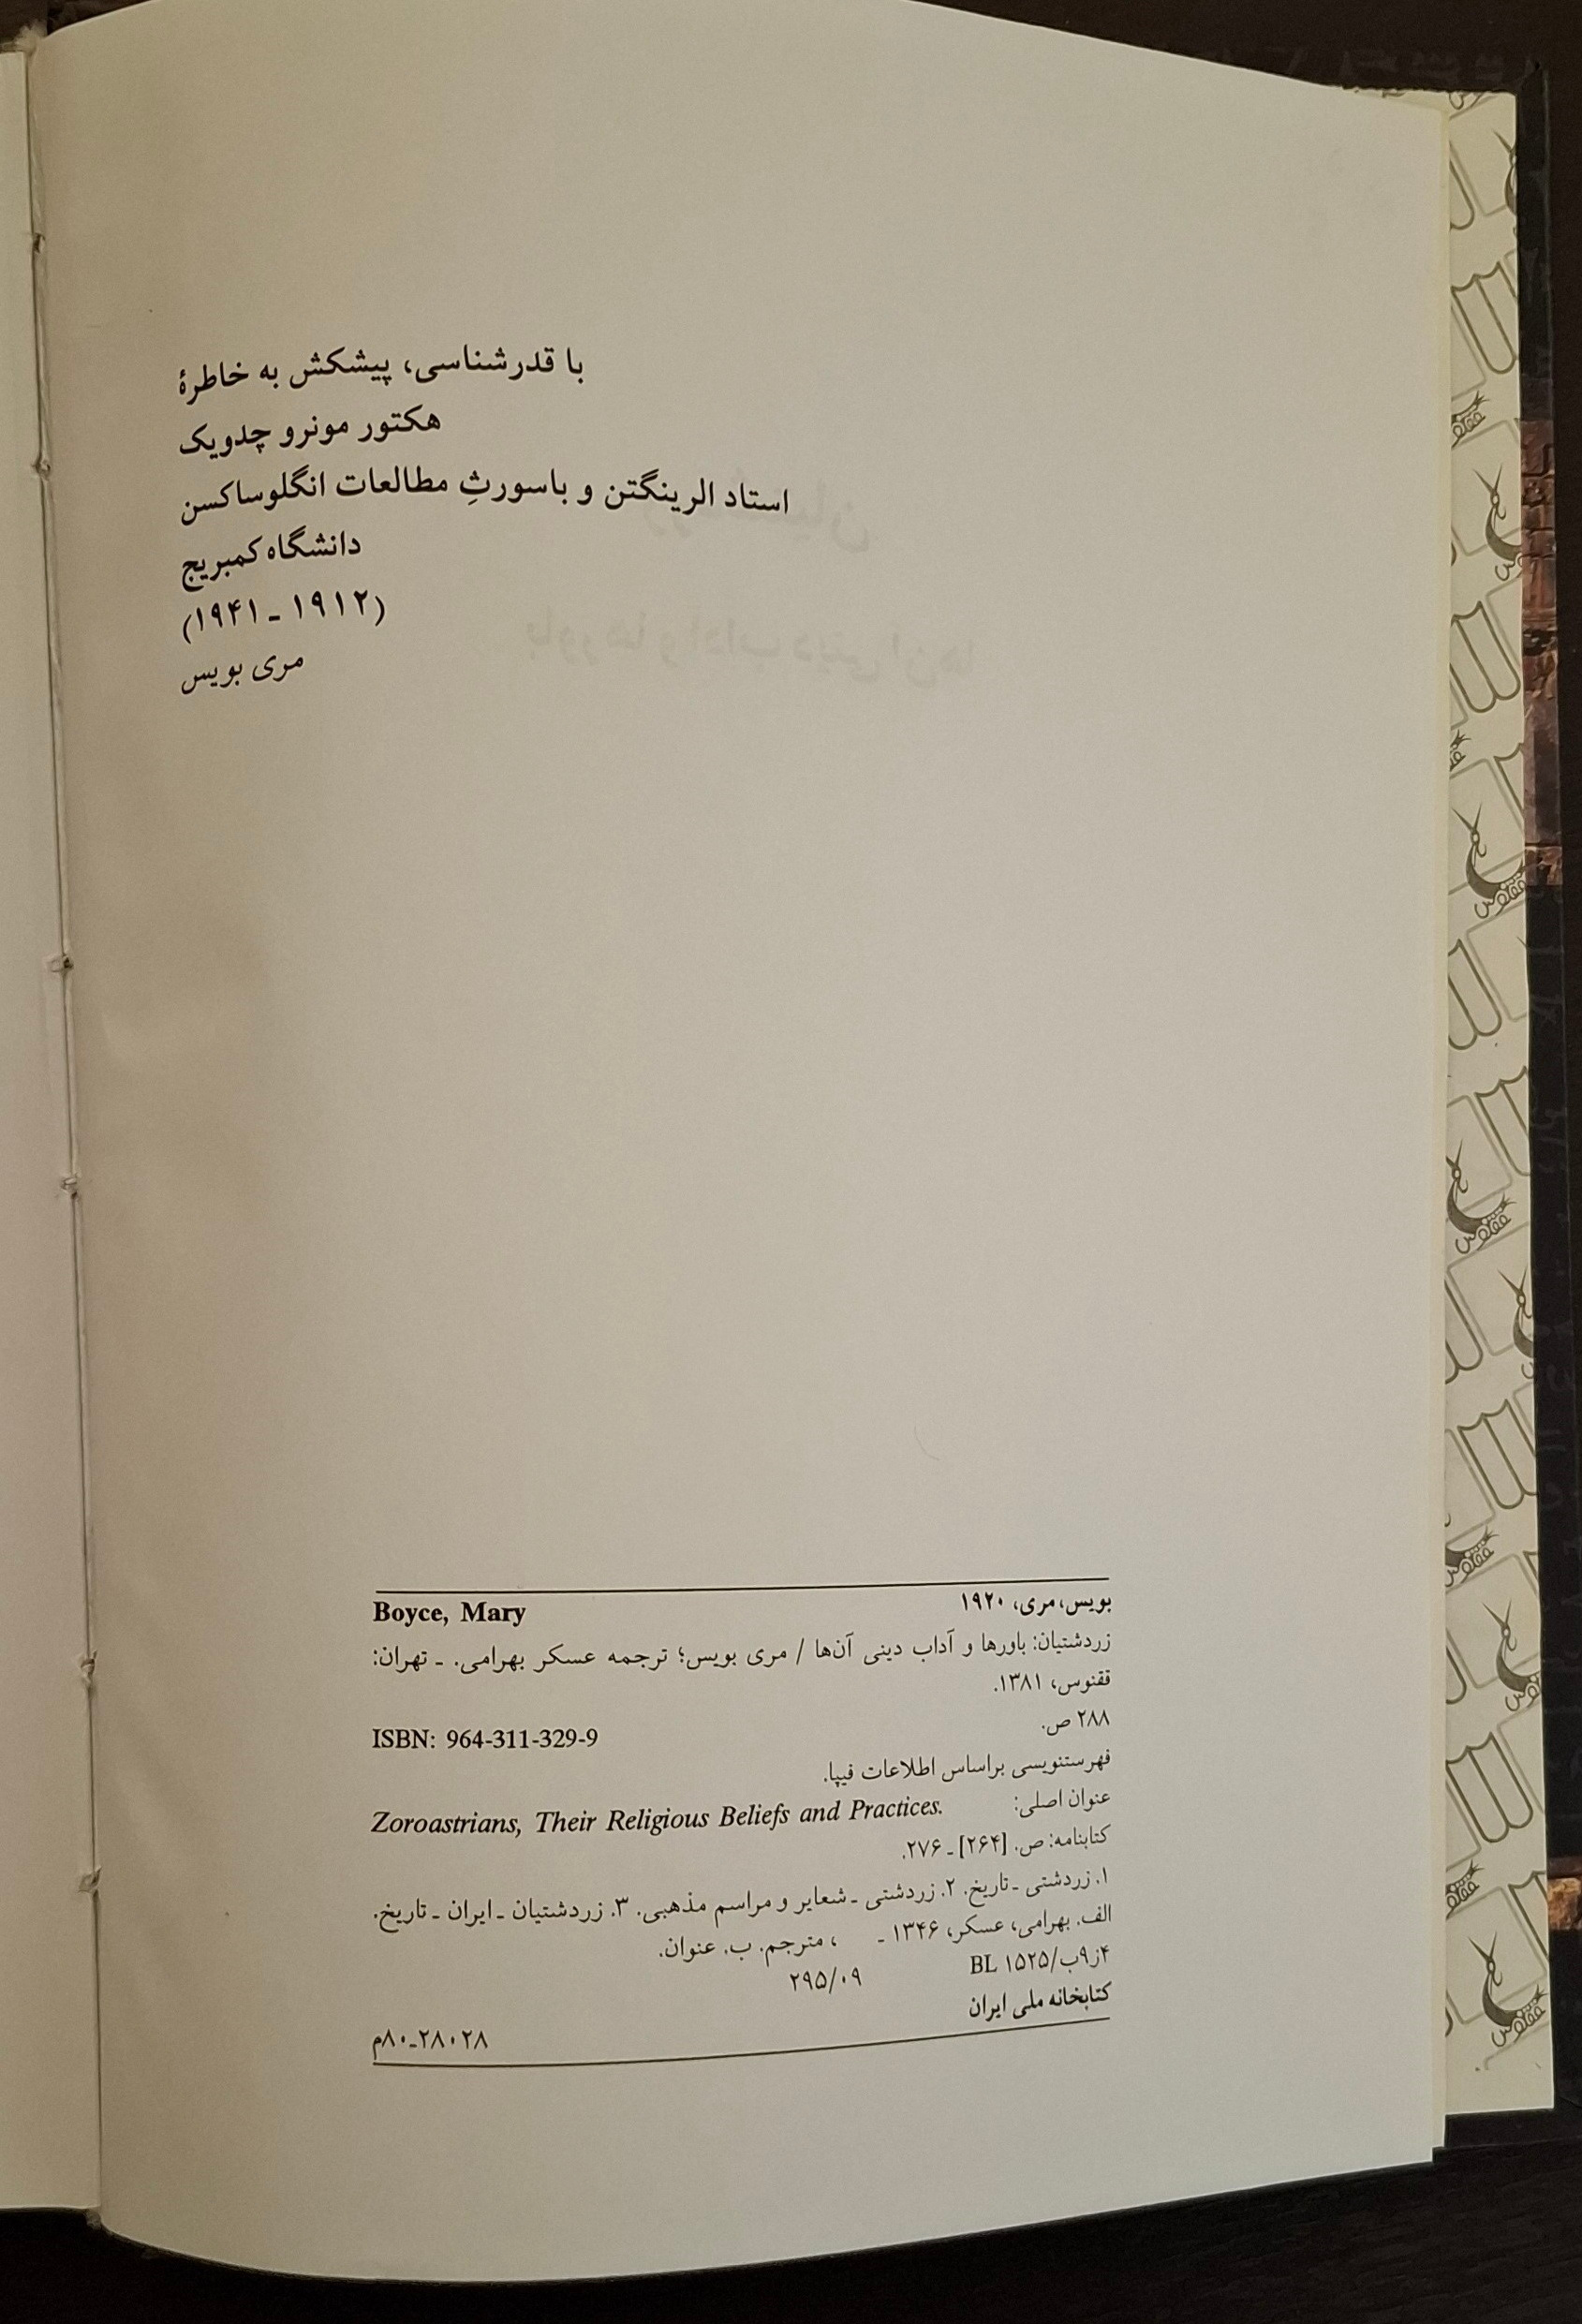 با قدرشناسی، پیشکش به خاطرهٔ
هکتور مونرو چدویک
استاد الرینگتن و باسورثِ مطالعات انگلوساکسن
دانشگاه کمبریج
(۱۹۱۲ ـ ۱۹۴۱)
مری بویس
بویس، مری، ۱۹۲۰ Boyce, Mary
زردشتیان: باورها و آداب دینی آن‌ها / مری بویس؛ ترجمه عسکر بهرامی. ـ تهران:
ققنوس، ۱۳۸۱.
۲۸۸ ص. ISBN: 964-311-329-9
فهرستنویسی براساس اطلاعات فیپا.
عنوان اصلی: Zoroastrians, Their Religious Beliefs and Practices.
کتابنامه: ص. [۲۶۴] ـ ۲۷۶.
۱. زردشتی ـ تاریخ. ۲. زردشتی ـ شعایر و مراسم مذهبی. ۳. زردشتیان ـ ایران ـ تاریخ.
الف. بهرامی، عسکر، ۱۳۴۶ ـ ، مترجم. ب. عنوان.
۴ز۹ب/۱۵۲۵ BL ۲۹۵/۰۹
کتابخانه ملی ایران ۲۸۰۲۸ـ۸۰م
ققنوس